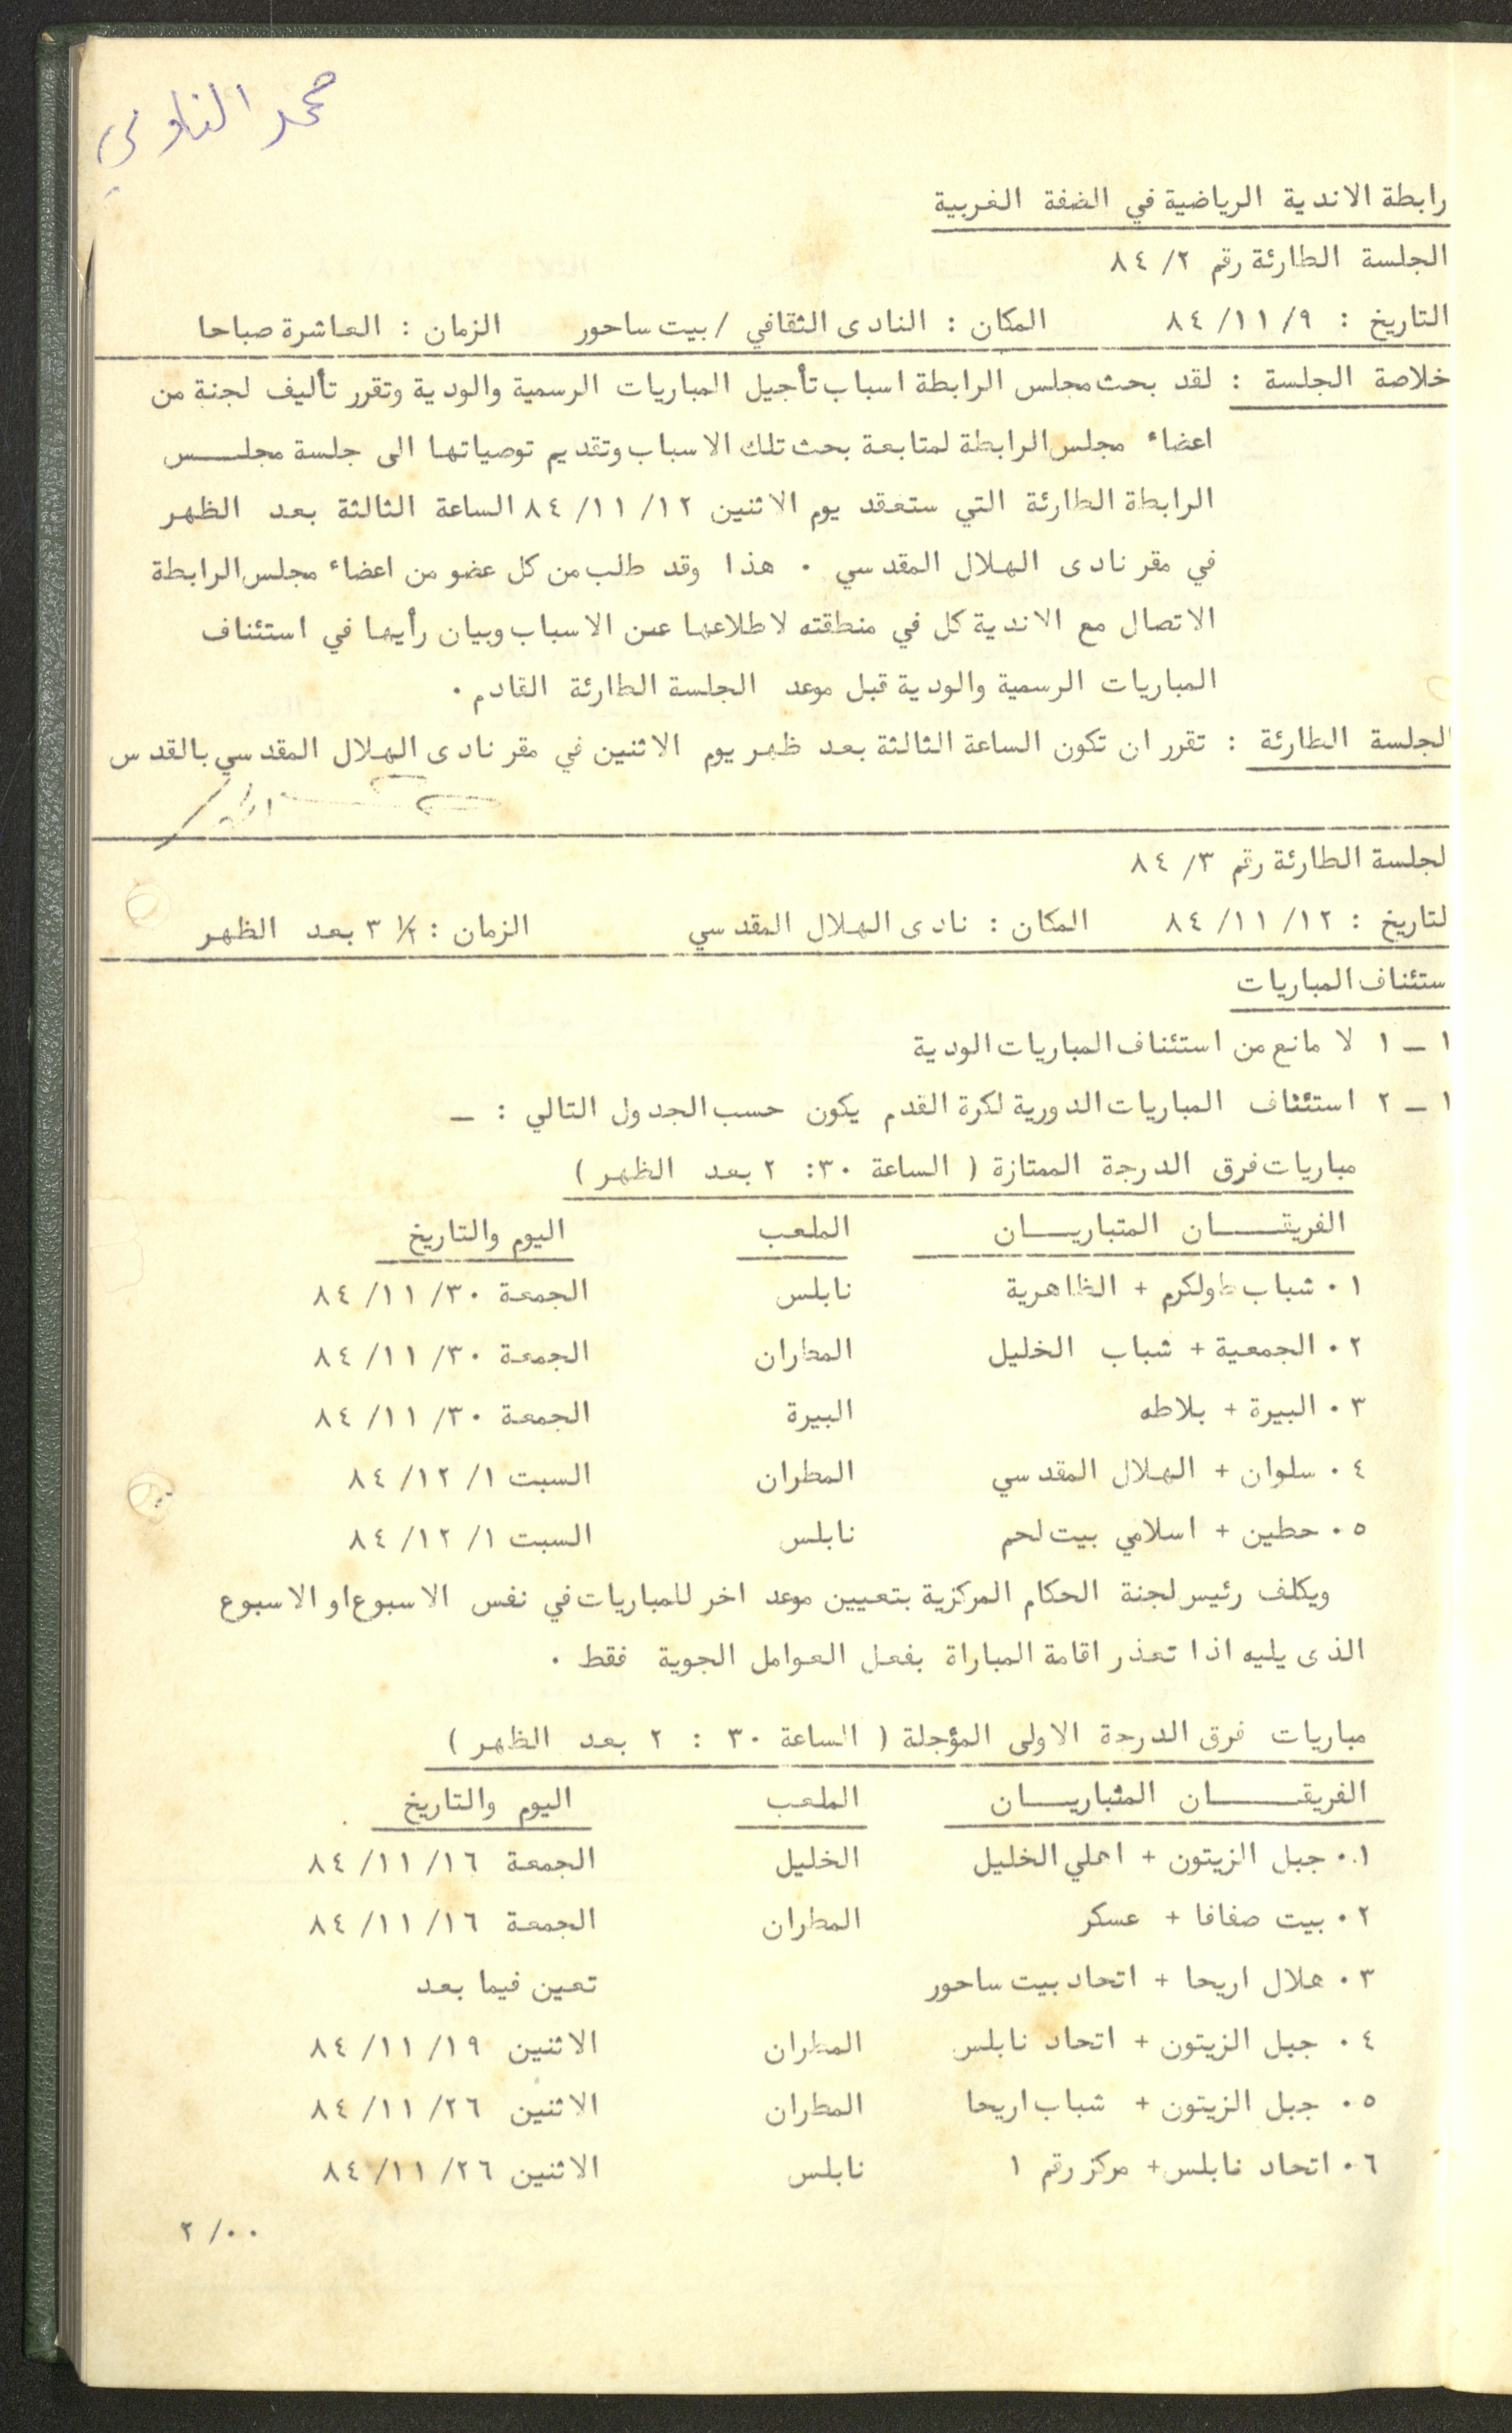 محمد النادي
رابطة الاندية الرياضية في الضفة الغربية
الجلسة الطارئة رقم ٨٤/٢
التاريخ : ٨٤/١١/٩ المكان : النادى الثقافي / بيت ساحور الزمان : العاشرة صباحا
خلاصة الجلسة : لقد بحث مجلس الرابطة اسباب تأجيل المباريات الرسمية والودية وتقرر تأليف لجنة من
اعضاء مجلس الرابطة لمتابعة بحث تلك الاسباب وتقديم توصياتها الى جلسة مجلـــس
الرابطة الطارئة التي ستعقد يوم الاثنين ٨٤/١١/١٢ الساعة الثالثة بعد الظهر
في مقر نادى الهلال المقدسي . هذا وقد طلب من كل عضو من اعضاء مجلس الرابطة
الاتصال مع الاندية كل في منطقته لاطلاعها عن الاسباب وبيان رأيها في استئناف
المباريات الرسمية والودية قبل موعد الجلسة الطارئة القادم .
لجلسة الطارئة : تقرر ان تكون الساعة الثالثة بعد ظهر يوم الاثنين في مقر نادى الهلال المقدسي بالقدس
لجلسة الطارئة رقم ٨٤/٣
لتاريخ : ٨٤/١١/١٢ المكان : نادى الهلال المقدسي الزمان : ١/٢ ٣ بعد الظهر
ستئناف المباريات
١ ـ ١ لا مانع من استئناف المباريات الودية
١ ـ ٢ استئناف المباريات الدورية لكرة القدم يكون حسب الجدول التالي : ـ
مباريات فرق الدرجة الممتازة ( الساعة ٣٠ : ٢ بعد الظهر )
الفريقــــان المتباريــــان الملعب اليوم والتاريخ
١ . شباب طولكرم + الظاهرية نابلس الجمعة ٨٤/١١/٣٠
٢ . الجمعية + شباب الخليل المطران الجمعة ٨٤/١١/٣٠
٣ . البيرة + بلاطه البيرة الجمعة ٨٤/١١/٣٠
٤ . سلوان + الهلال المقدسي المطران السبت ٨٤/١٢/١
٥ . حطين + اسلامي بيت لحم نابلس السبت ٨٤/١٢/١
ويكلف رئيس لجنة الحكام المركزية بتعيين موعد اخر للمباريات في نفس الاسبوع او الاسبوع
الذى يليه اذا تعذر اقامة المباراة بفعل العوامل الجوية فقط .
مباريات فرق الدرجة الاولى المؤجلة ( الساعة ٣٠ : ٢ بعد الظهر )
الفريقــــان المتباريــــان الملعب اليوم والتاريخ
١ . جبل الزيتون + اهلي الخليل الخليل الجمعة ٨٤/١١/١٦
٢ . بيت صفافا + عسكر المطران الجمعة ٨٤/١١/١٦
٣ . هلال اريحا + اتحاد بيت ساحور تعين فيما بعد
٤ . جبل الزيتون + اتحاد نابلس المطران الاثنين ٨٤/١١/١٩
٥ . جبل الزيتون + شباب اريحا المطران الاثنين ٨٤/١١/٢٦
٦ . اتحاد نابلس + مركز رقم ١ نابلس الاثنين ٨٤/١١/٢٦
٢/٠٠